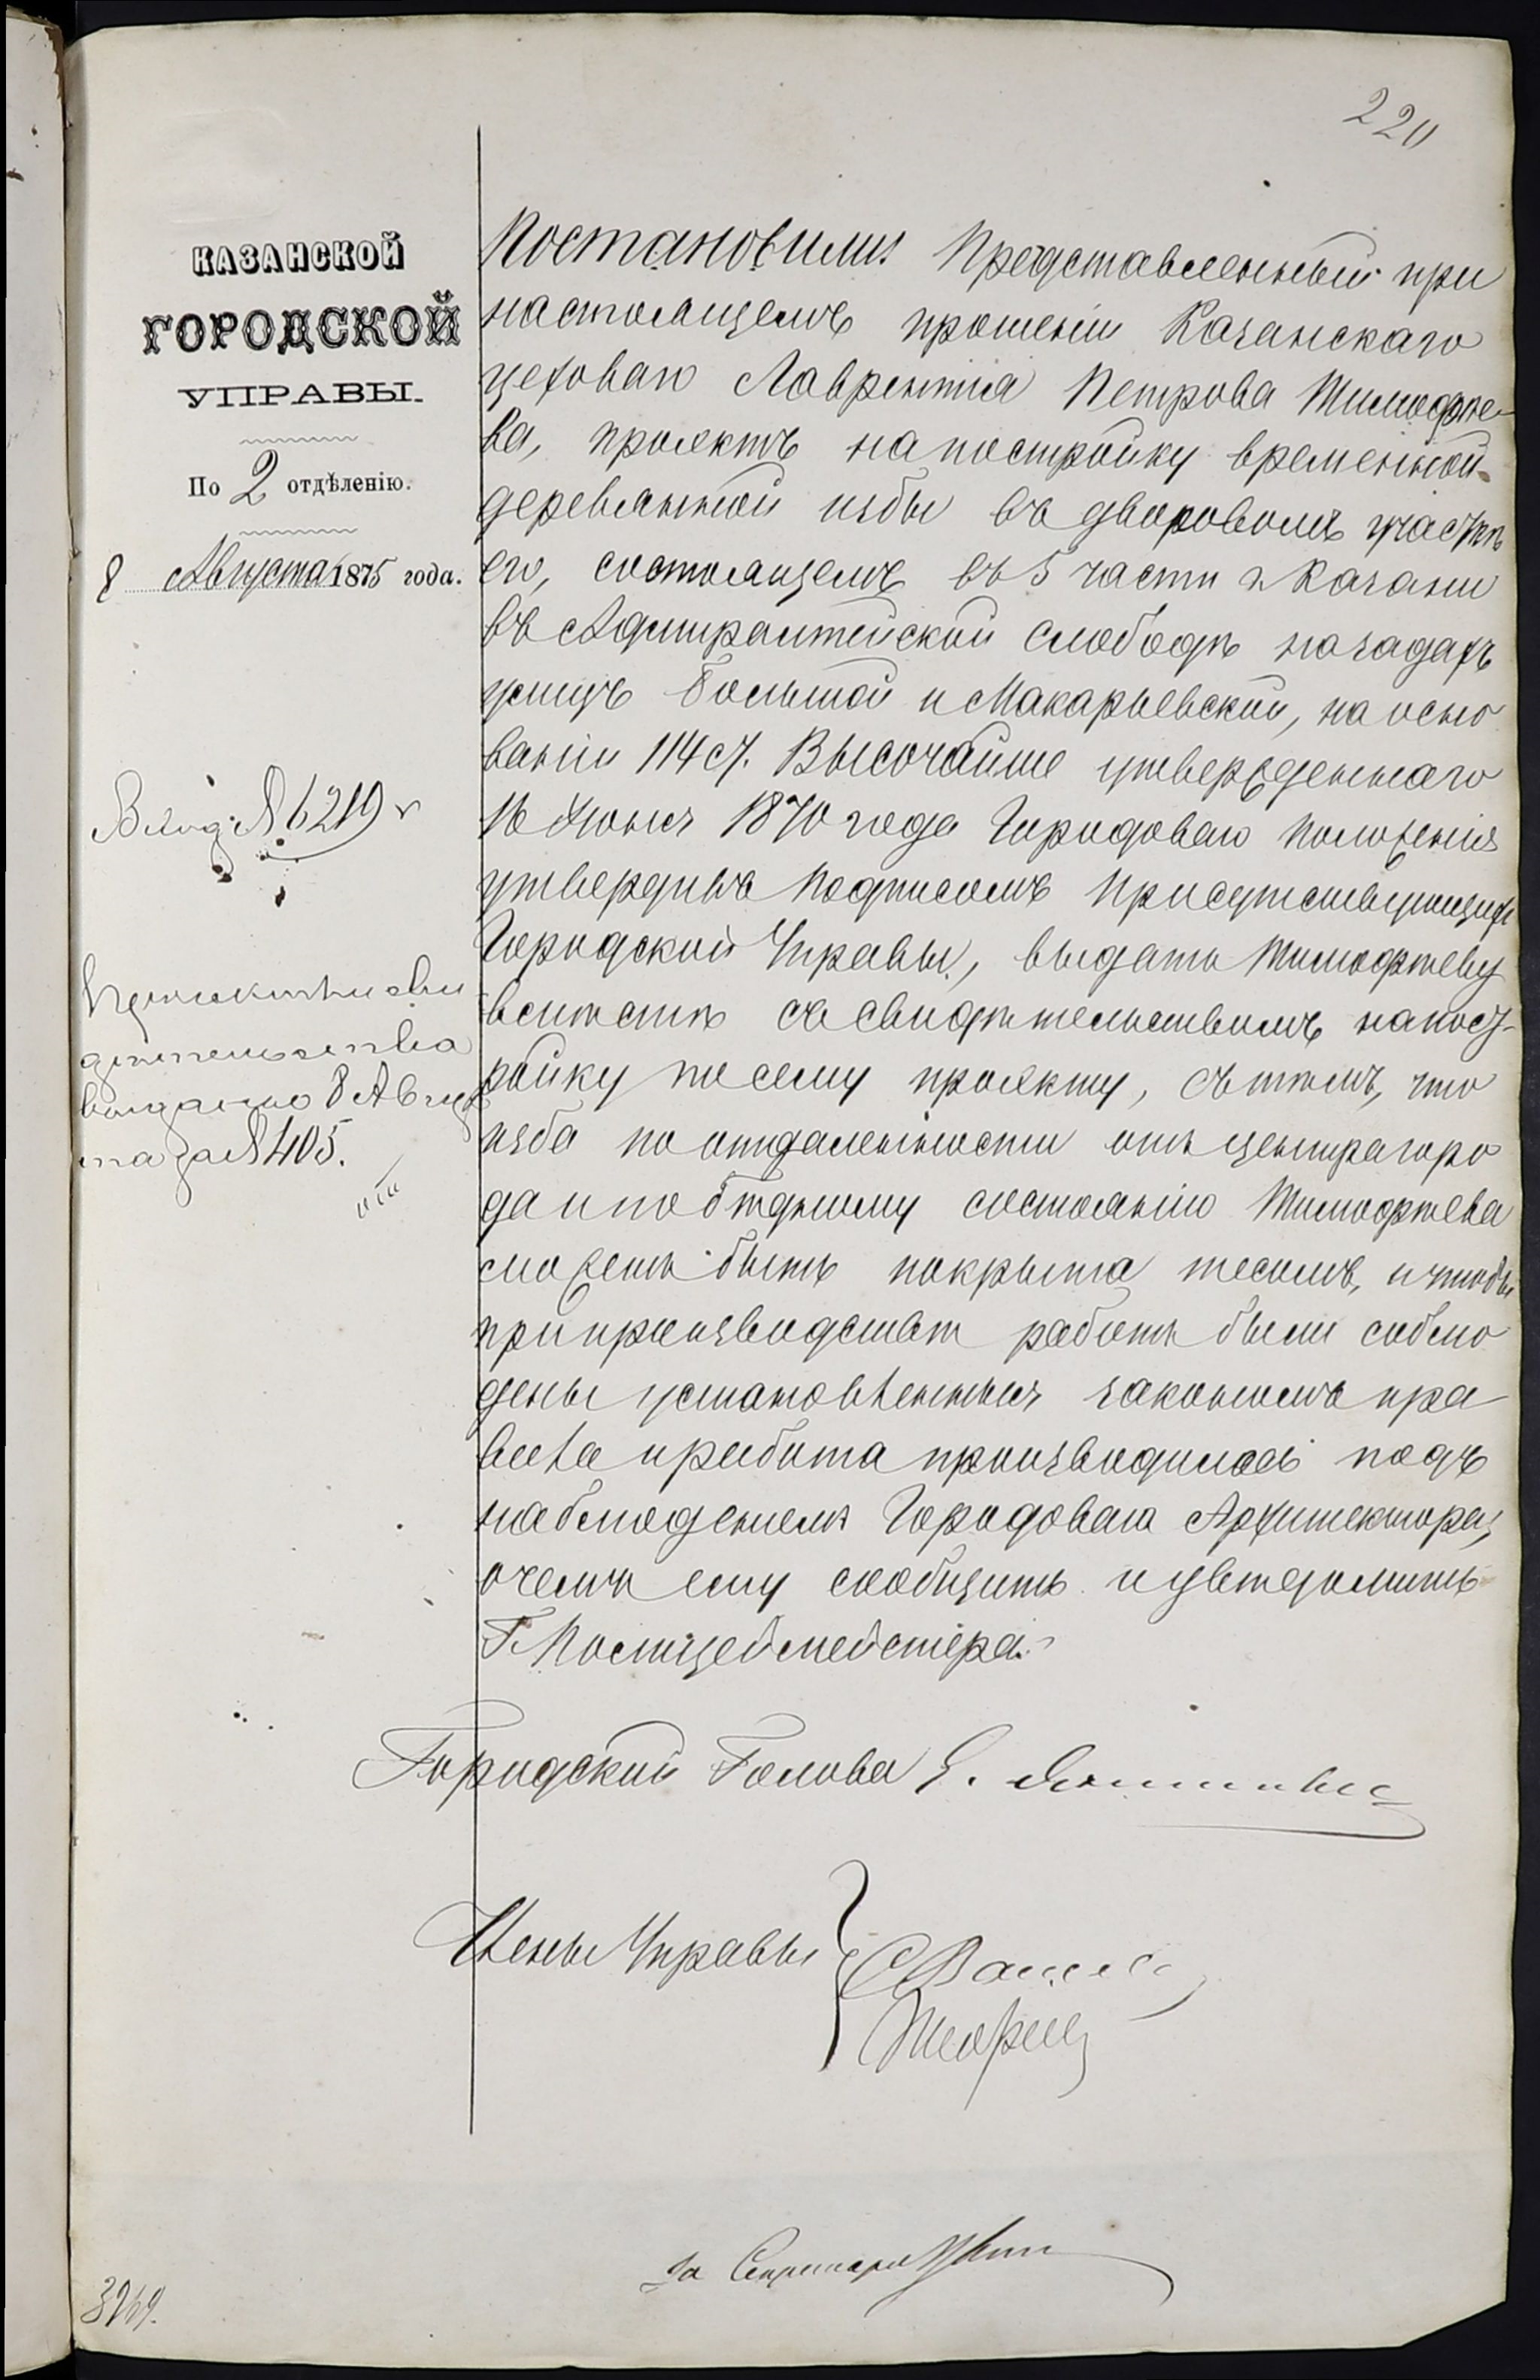 220
КАЗАНСКОЙ
ГОРОДСКОЙ
УПРАВЫ.
По 2 отдѣленію.
8 Августа 1875 года.
Вход. № 6219
Проектъ и сви
дѣтельства
выдано 8 Авгус
та за № 405.
Постановили: Представленный при
настоящемъ прошеніи Казанскаго
цеховаго Лаврентія Петрова Тимофѣе-
ва, проэктъ на постройку временной
деревянной избы въ дворовомъ участкѣ
его, состоящемъ въ 5 части г. Казани
въ Адмиралтейской слободѣ на задахъ
улицъ Большой и Макарьевской, на осно
ваніи 114 ст. Высочайше утвержденнаго
16 Іюня 1870 года Городоваго Положенія
утвердивъ подписомъ Присутствующихъ
Городской Управы, выдать Тимофѣеву
вмѣстѣ съ свидѣтельствомъ на пост-
ройку по сему проэкту, съ тѣмъ, что
изба по отдаленности отъ центра горо
да и по бѣдному состоянію Тимофѣева
можетъ быть покрыта тесомъ, и чтобы
при производствѣ работъ были соблю
дены установленныя закономъ пра
вила и работа производилась подъ
наблюденіемъ Городоваго Архитектора,
о чемъ ему сообщить и увѣдомить
Г. Полицеймейстера.
Городской Голова Е.
Члены Управы
За Секретаря
3269.